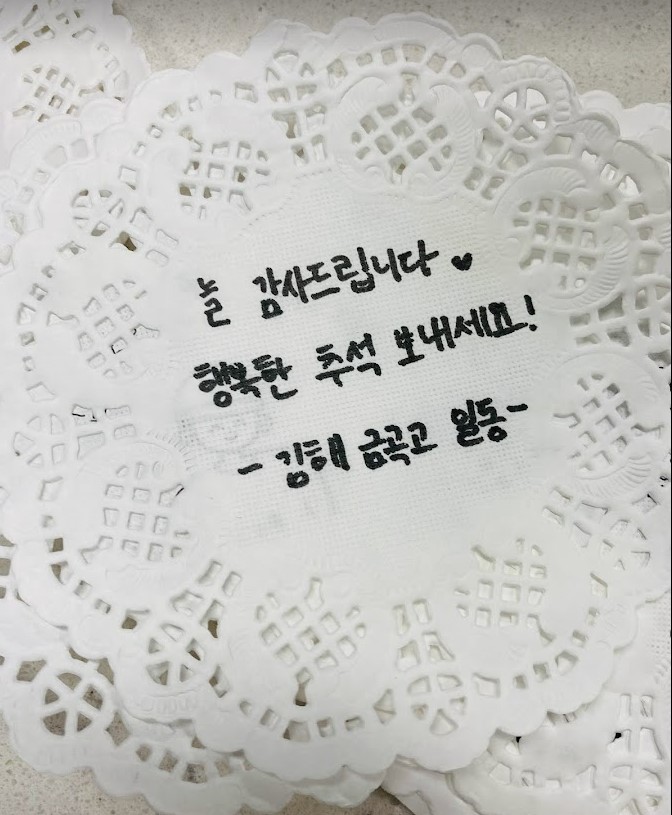 늘 감사드립니다 ♥
행복한 추석 보내세요!
- 김해 금곡고 일동 -